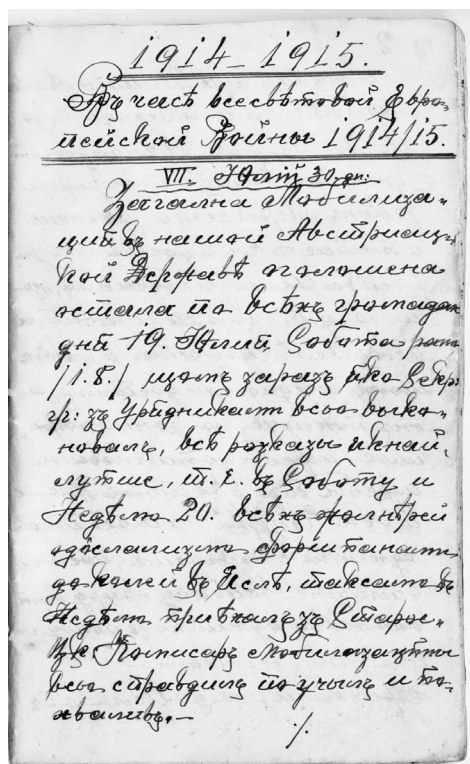 1914–1915.
Въ часѣ всесвѣтовой Евро-
пейской Войны 1914/15.
VII. Юлій 30. дн:
Загална Мобилиза-
ція въ нашой Австрiац-
кой Державѣ оголошена
остала по всѣхъ громадах
дня 19. Юлия Собота рано
/1.8./ щомъ заразъ яко Секр:
гр: зъ Урядникам всьо выко-
новалъ, всѣ розказы якнай-
лутше, т. е. въ Соботу и
Недѣлю 20. всѣхъ жолнѣрей
одослалисмо форшпанами
до колѣи въ Яслѣ, таксамо въ
Недѣлю приѣхалъ зъ Старос-
Комисаръ мобилизацiйны
всьо справдилъ поучылъ и по-
хваливъ.–
./.